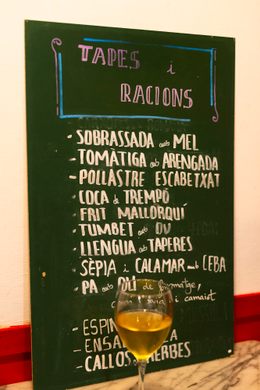 TAPES i
RACIONS
- SOBRASSADA amb MEL
- TOMÀTIGA amb ARENGADA
- POLLASTRE ESCABETXAT
- COCA de TREMPÓ
- FRIT MALLORQUÍ
- TUMBET amb OU
- LLENGUA amb TÀPERES
- SÈPIA i CALAMAR amb CEBA
- PA amb OLI de formatge,
i camaiot
- ESPIN
- ENSA
- CALLOS HERBES